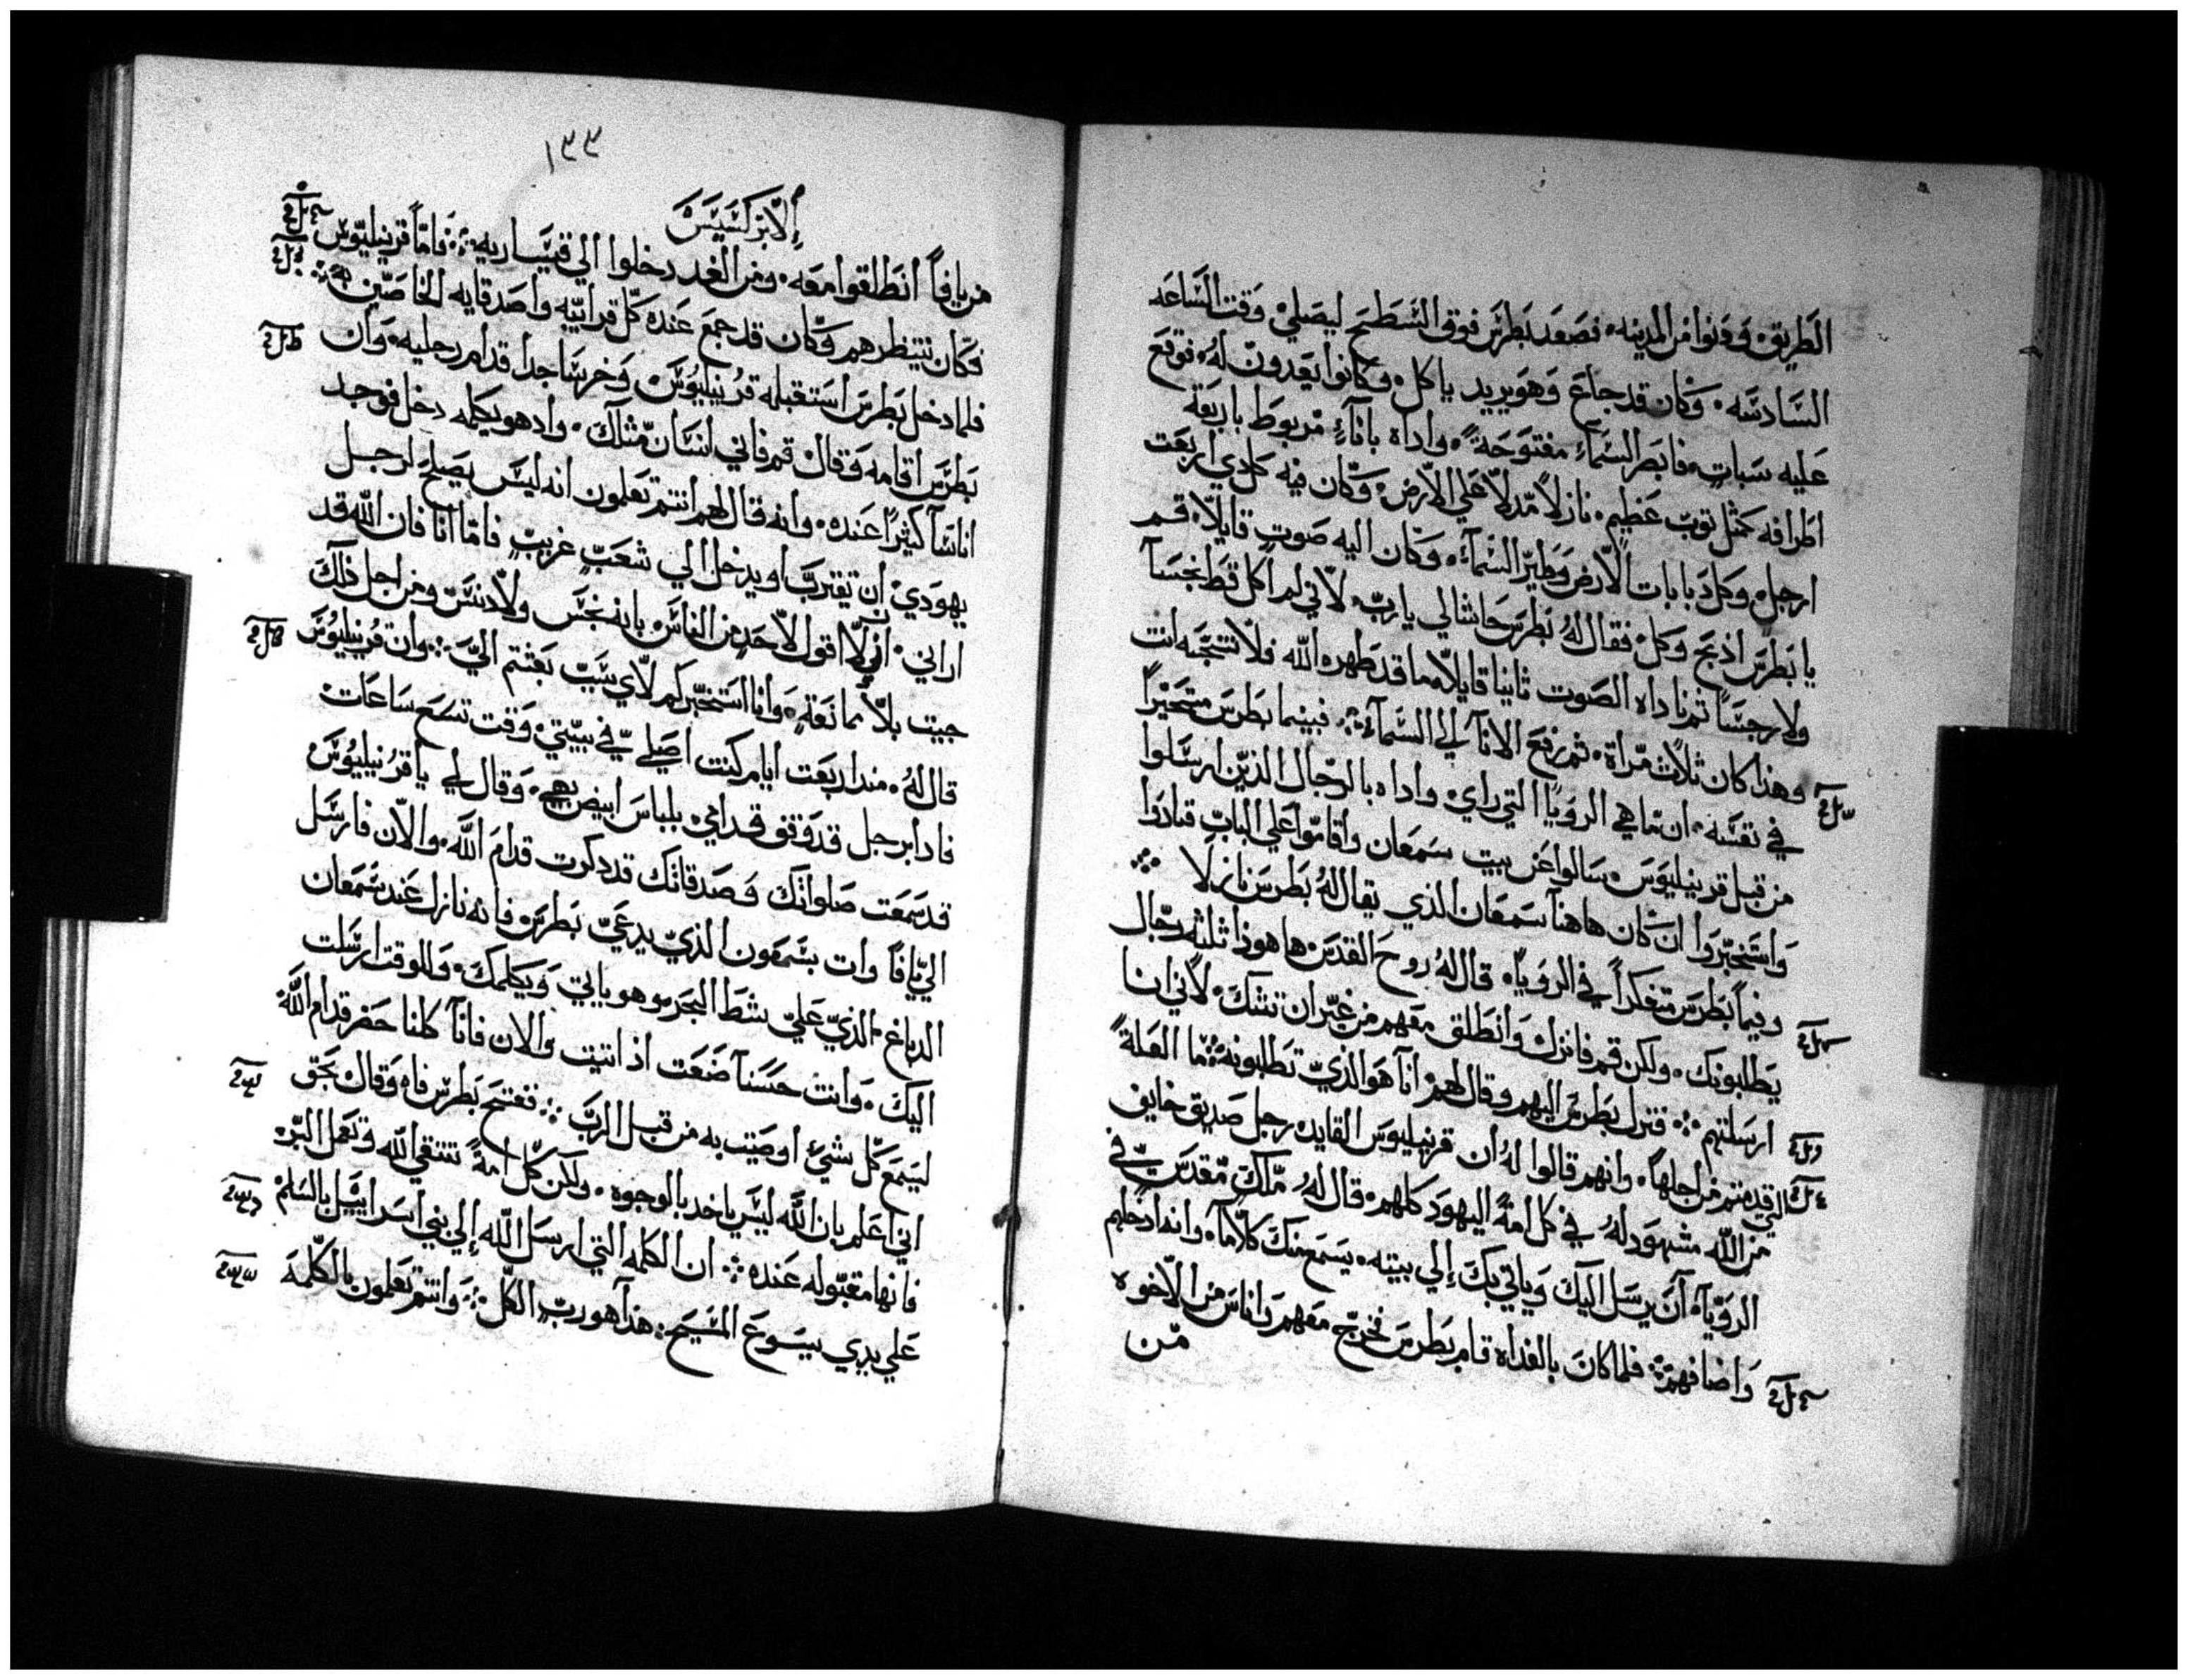 الطريق ودنوا من المدينه فصعد بطرس فوق السطح ليصلي وقت الساعه
السادسه وكان قد جاع وهو يريد ياكل وكانوا يعدون له فوقع
عليه سبات فابصر السماء مفتوحة واداه باناءٍ مربوط باربعة
اطرافه كمثل توب عظيم نازلاً مدلا علي الارض وكان فيه كل دي اربعت
ارجل وكل دبابات الارض وطير السماء وكان اليه صوت قايلا قم
يا بطرس ادبح وكل فقال له بطرس حاشا لي يا رب لاني لم اكل قط نجسا
ولا رجسا تم ناداه الصوت ثانيا قايلا ما قد طهره الله فلا تنجسه انت
وهذا كان ثلاث مراة ثم رفع الانا الي السماء فبينما بطرس متحيراً
في نفسه ان ما هي الرويا التي راي واداه بالرجال الذين ارسلوا
من قبل قرنيليوس سالوا عن بيت سمعان واقاموا علي الباب فنادوا
واستخبروا ان كان هاهنا سمعان الذي يقال له بطرس نازلا
وفيما بطرس متفكراً في الرويا قال له روح القدس ها هوذا ثلثه رجال
يطلبونك ولكن قم فانزل وانطلق معهم من غير ان تشك لاني انا
ارسلتهم فنزل بطرس اليهم وقال لهم انا هو الذي تطلبونه ما العلة
التي قدمتم من اجلها وانهم قالوا له ان قرنيليوس القايد رجل صديق خايف
من الله مشهود له في كل امة اليهود كلهم قال له ملك مقدس في
الرويا ان يرسل اليك وياتي بك إلي بيته يسمع منك كلاما وانه ادخلهم
واضافهم فلما كان بالغداه قام بطرس فخرج معهم واناس من الاخوه
من
١٣٣
الابركسيس
من يافا انطلقوا معه ومن الغد دخلوا الي قيساريه فاما قرنيليوس
فكان ينتظرهم وكان قد جمع عنده كل قرابيه واصدقايه الخاصين
فلما دخل بطرس استقبله قرنيليوس وخر ساجدا قدام رجليه وان
بطرس اقامه وقال قم فاني انسان مثلك وادهو يكلمه دخل فوجد
اناسا كثيراً عنده وانه قال لهم انتم تعلمون انه ليس يصلح لرجل
يهودي ان يقترب او يدخل الي شعب غريب فاما انا فان الله قد
اراني ان لا اقول لاحد من الناس بانه نجس ولا دنس ومن اجل ذلك
جيت بلا ممانعة وانا استخبركم لاي شيت بعثتم الي وان قرنيليوس
قال له مند اربعت ايام كنت اصلي في بيتي وقت تسع ساعات
فادا برجل قد وقف قدامي بلباس ابيض بهي وقال لي يا قرنيليوس
قد سمعت صلواتك وصدقاتك قد دكرت قدام الله والان فارسل
الي يافا وات بشمعون الذي يدعي بطرس فانه نازل عند سمعان
الدباغ الذي علي شط البحر وهو ياتي ويكلمك وللوقت ارسلت
اليك وانت حسنا صنعت اذ اتيت والان فانا كلنا حضر قدام الله
ليسمع كل شئ اوصيت به من قبل الرب ففتح بطرس فاه وقال بحق
اني اعلم بان الله ليس ياخد بالوجوه ولكن كل امة تتقي الله وتعمل البر
فانها مقبوله عنده ان الكلمه التي ارسل الله إلي بني اسراييل بالسلم
علي يدي يسوع المسيح هذا هو رب الكل وانتم تعلمون بالكلمة